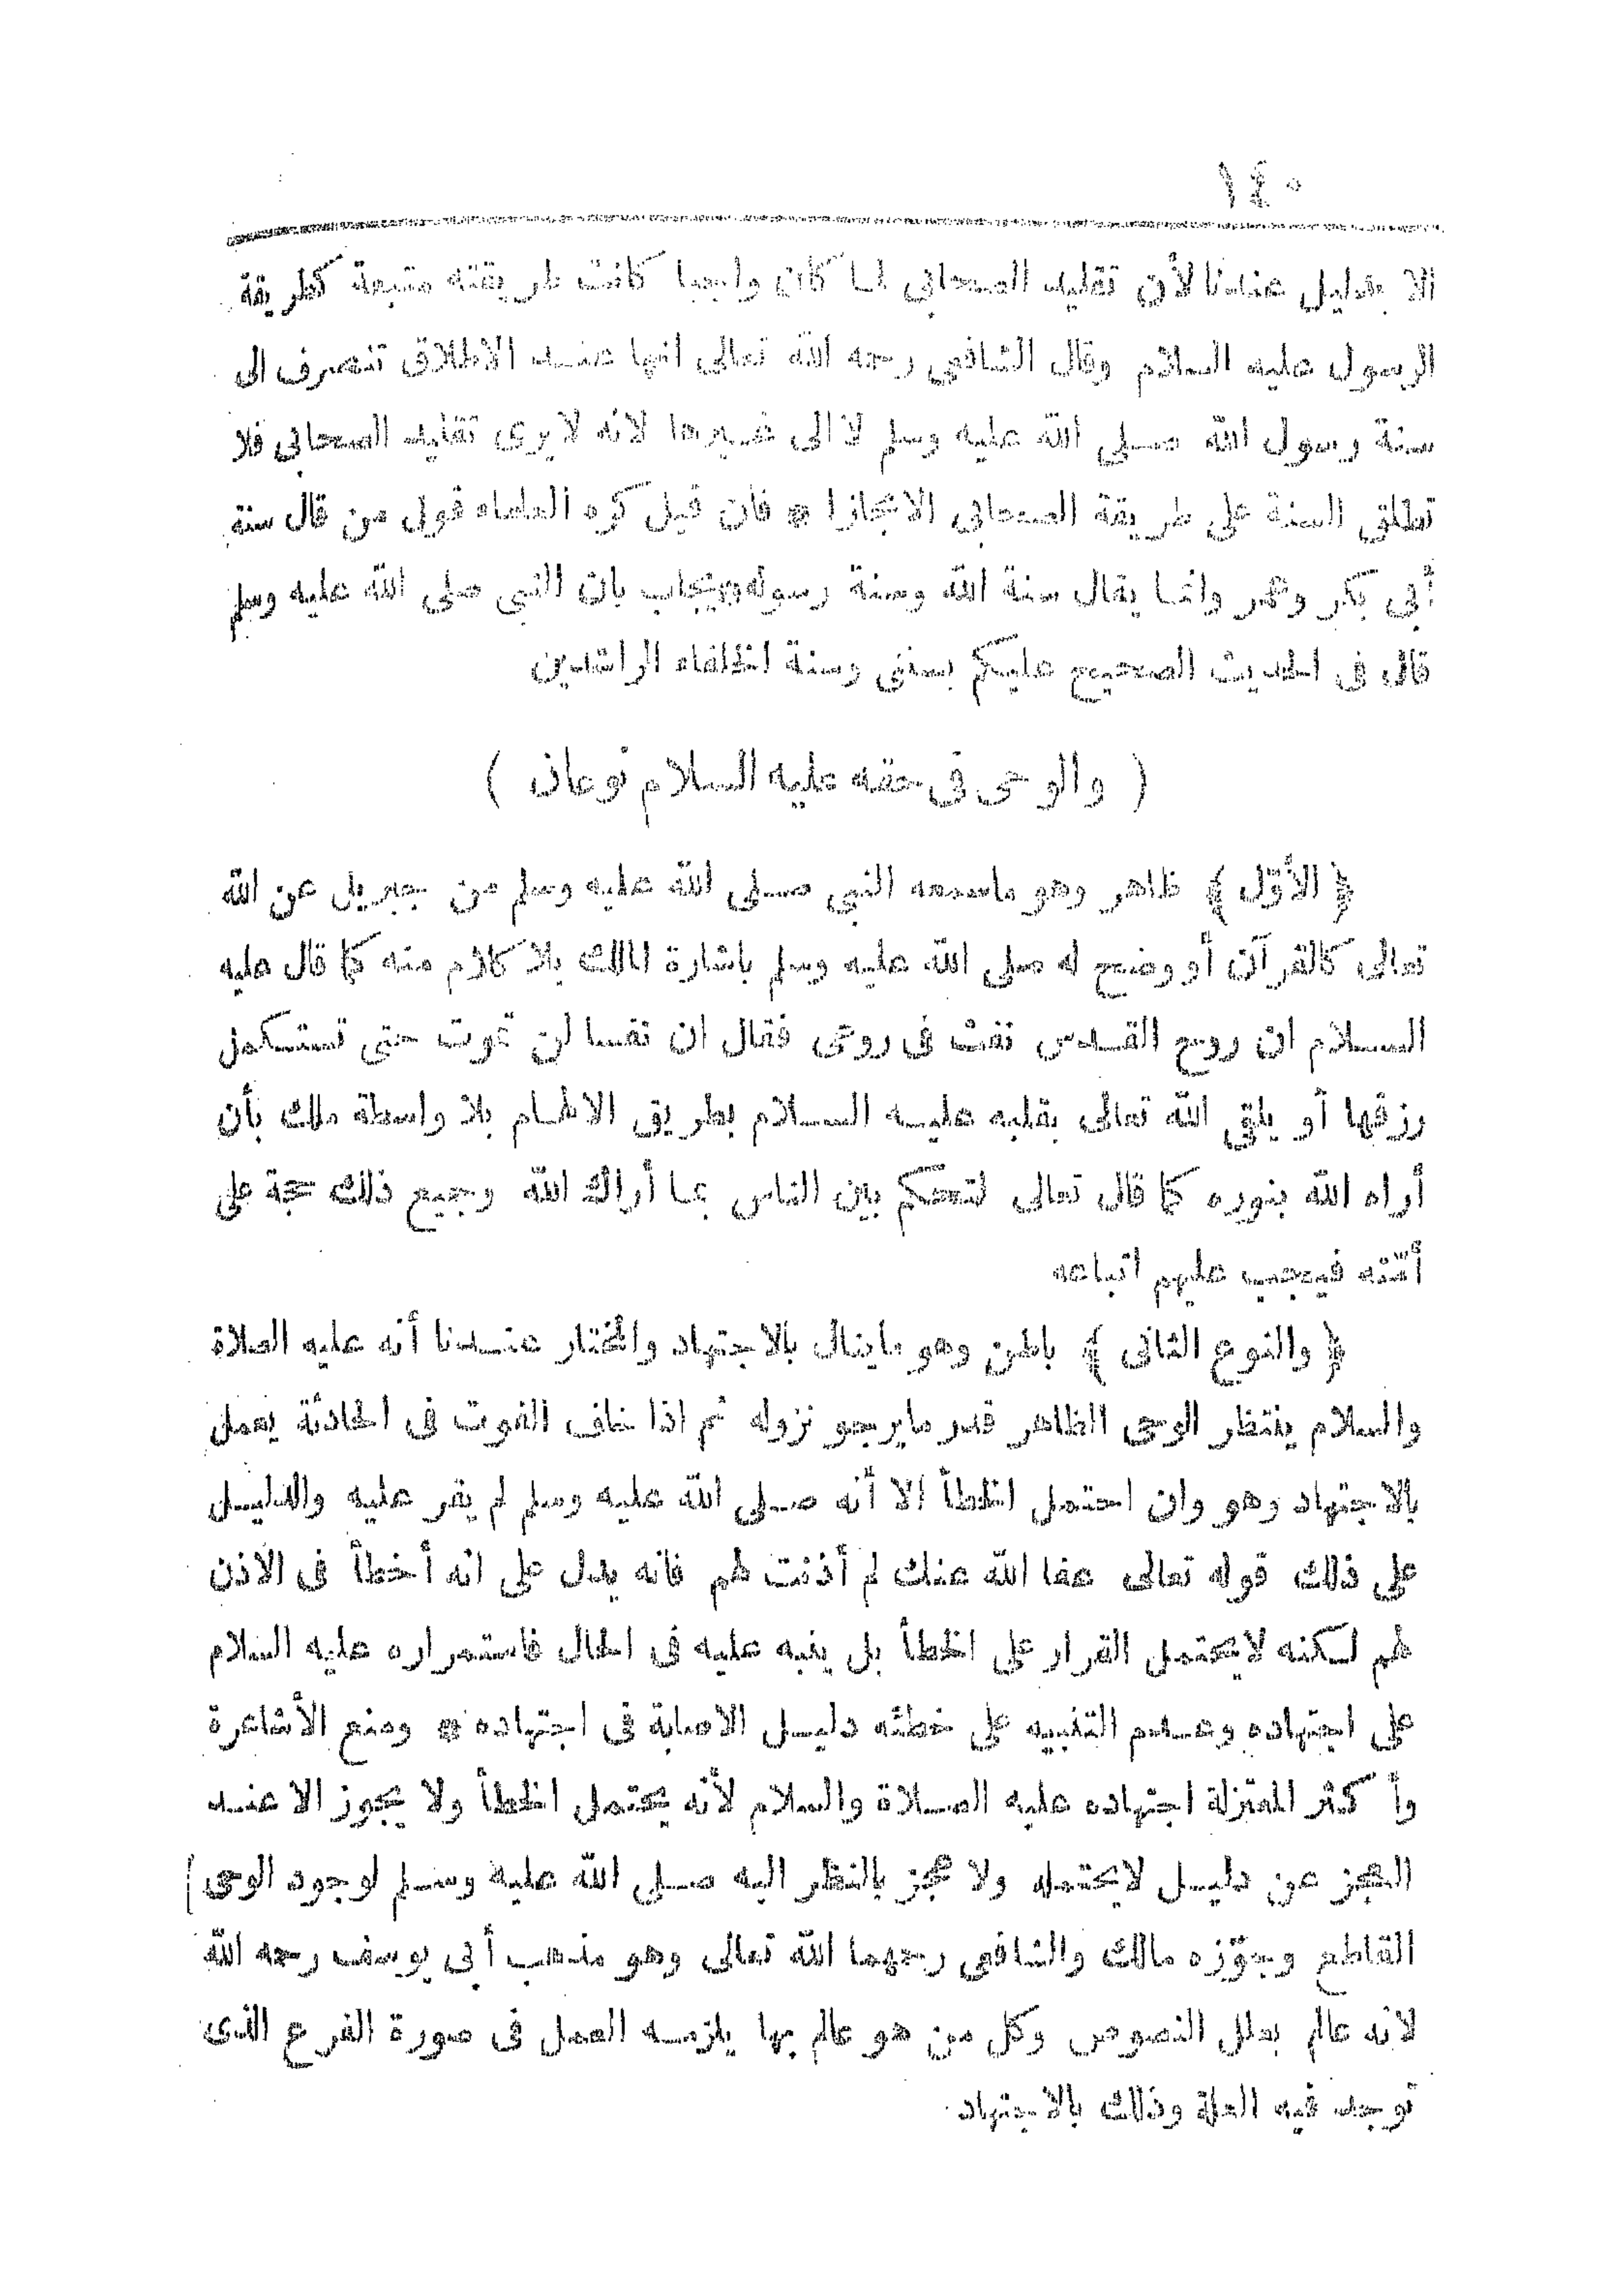 ١٤٠
الا بدليل عندنا لأن تقليد الصحابى لما كان واجبا كانت طريقته متبعة كطريقة
الرسول عليه السلام وقال الشافعى رحمه الله تعالى انها عنـد الاطلاق تنصرف الى
سنة رسول الله صـلى الله عليه وسلم لا الى غـيرها لانه لا يرى تقليد الصحابى فلا
تطلق السنة على طريقة الصحابى الا مجازا * فان قيل كره العلماء قول من قال سنة
أبى بكر وعمر وانما يقال سنة الله وسنة رسوله * يجاب بان النبى صلى الله عليه وسلم
قال فى الحديث الصحيح عليكم بسنتى وسنة الخلفاء الراشدين
( والوحى فى حقه عليه السلام نوعان )
﴿ الأوّل ﴾ ظاهر وهو ماسمعه النبى صـلى الله عليه وسلم من جبريل عن الله
تعالى كالقرآن أو وضح له صلى الله عليه وسلم باشارة الملك بلا كلام منه كما قال عليه
السـلام ان روح القـدس نفث فى روعى فقال ان نفسا لن تموت حتى تستـكمل
رزقها أو يلقى الله تعالى بقلبه عليـه السـلام بطريق الالهـام بلا واسطة ملك بأن
أراه الله بنوره كما قال تعالى لتحكم بين الناس بما أراك الله وجميع ذلك حجة على
أمّته فيجب عليهم اتباعه
﴿ والنوع الثانى ﴾ باطن وهو ماينال بالاجتهاد والمختار عنـدنا أنه عليه الصلاة
والسلام ينتظر الوحى الظاهر قدر مايرجو نزوله ثم اذا خاف الفوت فى الحادثة يعمل
بالاجتهاد وهو وان احتمل الخطأ الا أنه صـلى الله عليـه وسلم لم يقر عليه والدليـل
على ذلك قوله تعالى عفا الله عنك لم أذنت لهم فانه يدل على انه أخطأ فى الاذن
لهم لـكنه لايحتمل القرار على الخطأ بل ينبه عليه فى الحال فاستمراره عليه السلام
على اجتهاده وعـدم التنبيه على خطئه دليـل الاصابة فى اجتهاده * ومنع الأشاعرة
وأكثر المعتزلة اجتهاده عليه الصـلاة والسلام لأنه يحتمل الخطأ ولا يجوز الا عنـد
العجز عن دليـل لايحتمله ولا عجز بالنظر اليه صـلى الله عليه وسـلم لوجود الوحى
القاطع وجوّزه مالك والشافعى رحمهما الله تعالى وهو مذهب أبى يوسف رحمه الله
لانه عالم بعلل النصوص وكل من هو عالم بها يلزمـه العمل فى صورة الفرع الذى
توجد فيه العلة وذلك بالاجتهاد